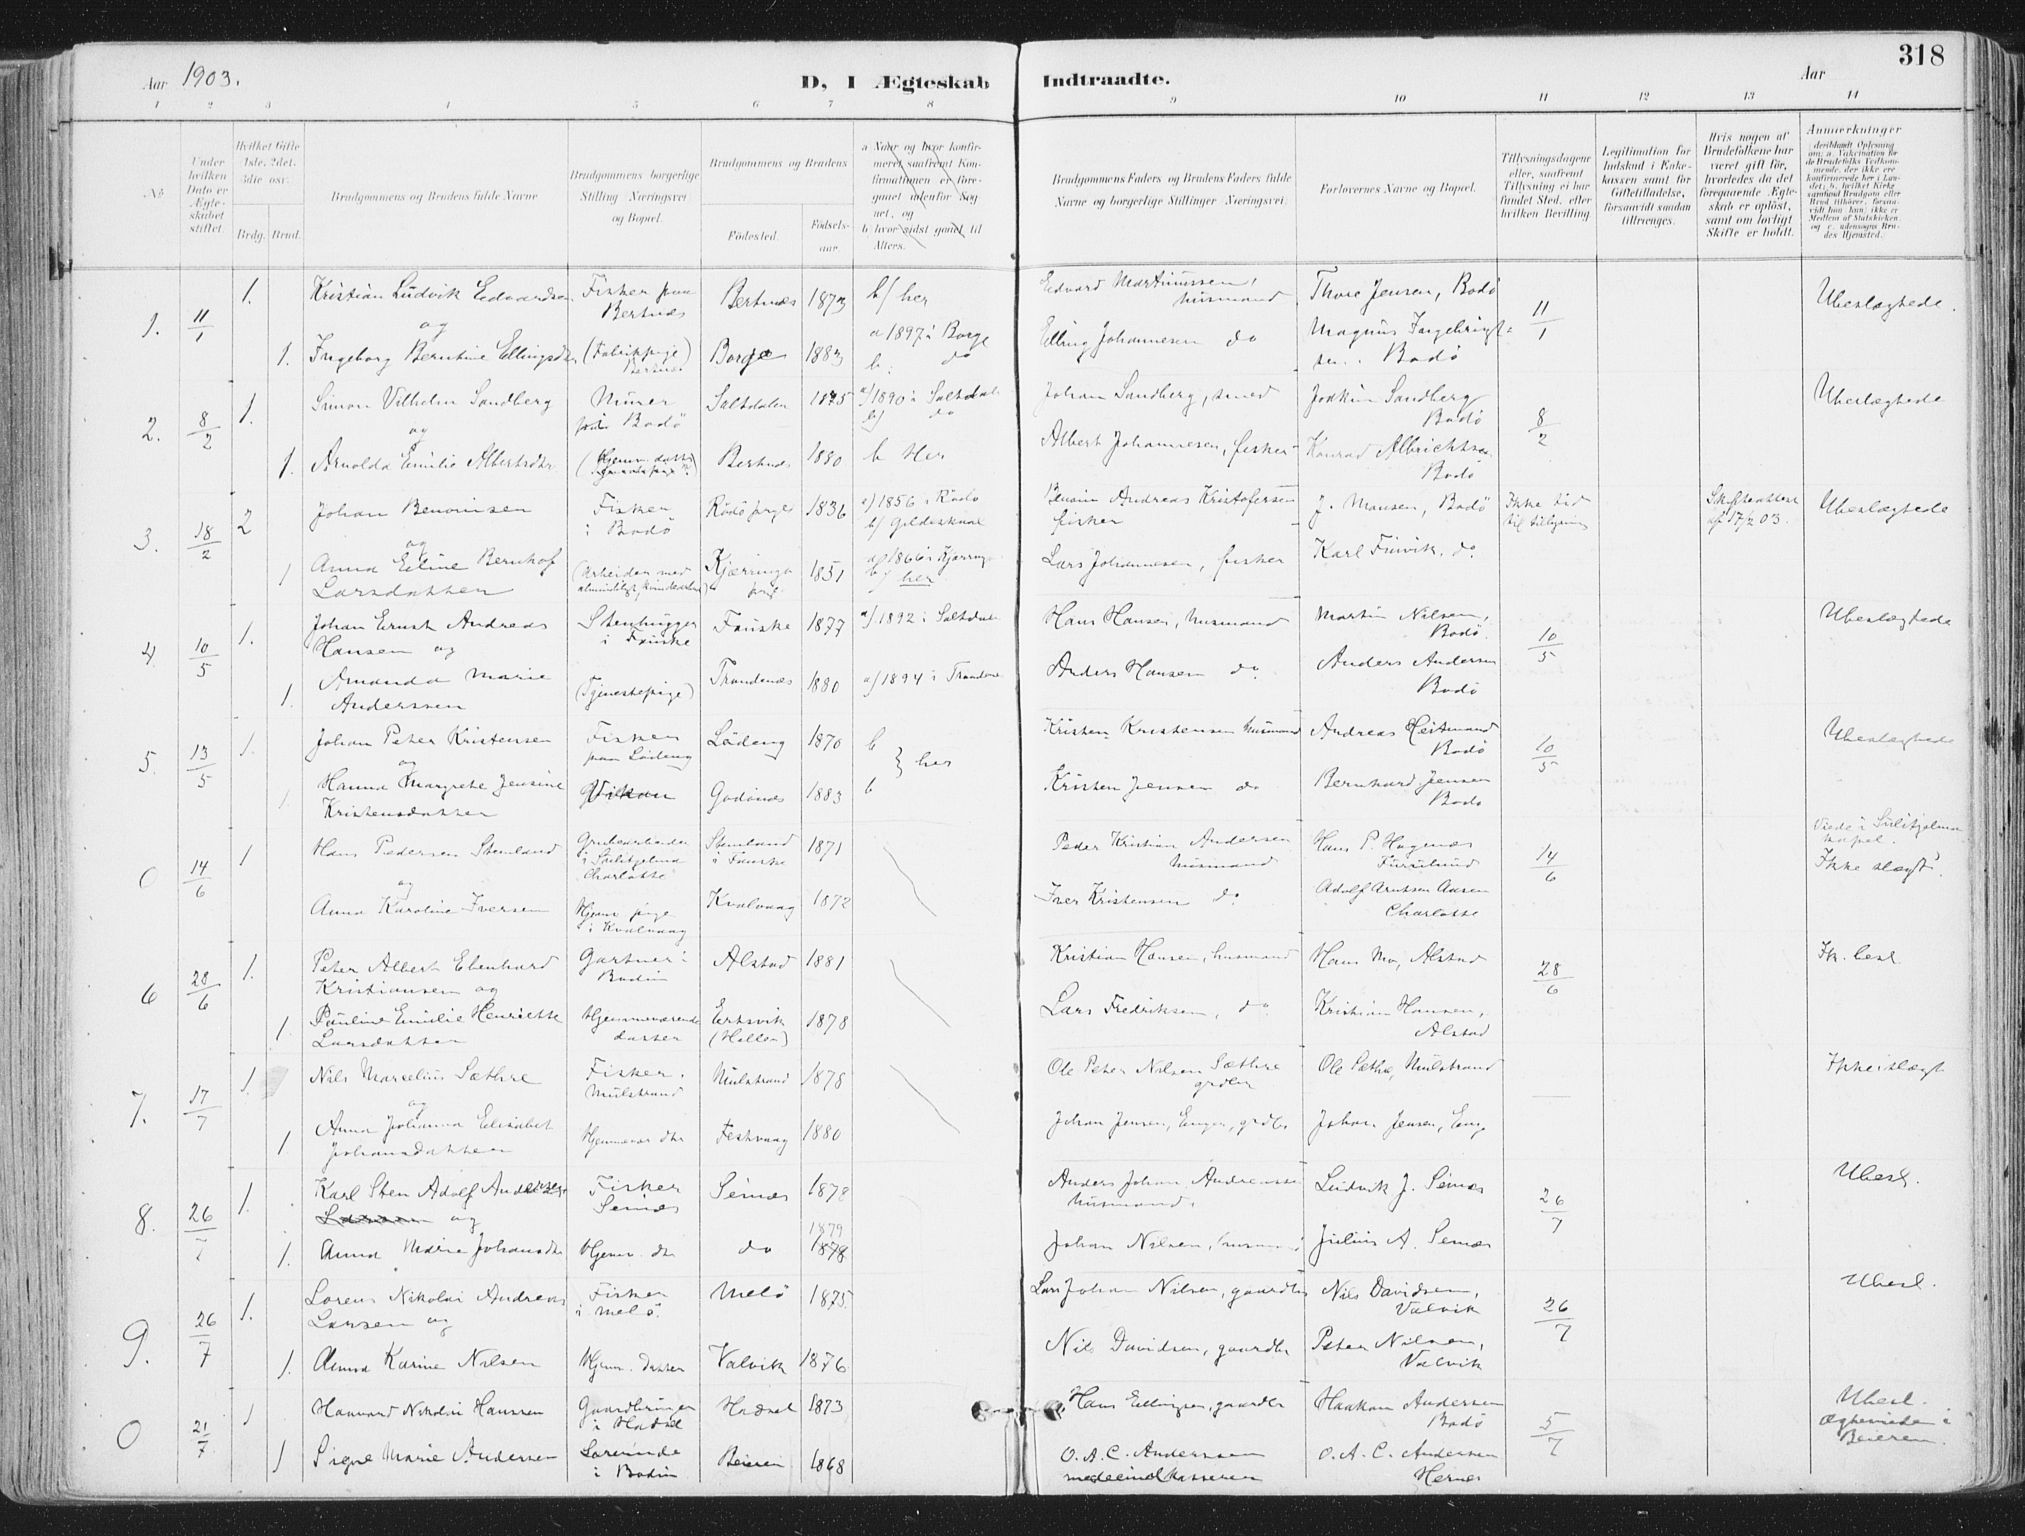 318
Aar 1903.
D, I Ægteskab Indtraadte.
Aar
1 2 3 4 5 6 7 8 9 10 11 12 13 14
No
Under hvilken Dato er Ægteskabet stiftet.
Hvilket Gifte 1ste, 2det, 3die osv.
Brdg. Brud.
Brudgommens og Brudens fulde Navne
Brudgommens borgerlige Stilling Næringsvei og Bopæl.
Brudgommens og Brudens
Födested.
Födselsaar
a Naar og hvor konfirmeret, saafremt Konfirmationen er foregaaet udenfor Sognet, og
b hvor sidst gaaet til Alters.
Brudgommens Faders og Brudens Faders fulde Navne og borgerlige Stillinger Næringsvei.
Forlovernes Navne og Bopæl.
Tillysningsdagene eller, saafremt Tillysning ei har fundet Sted, efter hvilken Bevilling.
Legitimation for Indskud i Enkekassen samt for Giftetilladelse, forsaavidt saadan tiltrænges.
Hvis nogen af Brudefolkene har været gift för, hvorledes da det foregaaende Ægteskab er oplöst, samt om lovligt Skifte er holdt.
Anmerkninger
1. 11/1 1. Kristian Ludvik Edvardsen Fisker paa Bertnæs Bertnæs 1873 b/ her Edvard Martinussen, husmand Thore Jensen, Bodö 11/1 Ubeslægtede.
og
1. Ingeborg Berntine Ellingsdtr (Fabrikpige) Bertnæs Borge 1883 a 1897 i Borge b. do Elling Johannesen do Magnus Ingebrigtsen. Bodö
2. 8/2 1. Simon Vilhelm Sandberg Murer Bodö Saltdalen 1875 a/ 1890 i Saltdal b) do Johan Sandberg, smed Joakim Sandberg Bodö 8/2 Ubeslægtede
og
1. Arnolda Emilie Albertsdtr Bertnæs 1880 b Her Albert Johannesen, fisker Konrad Albrichtsen Bodö
3. 18/2 2 Johan Benonisen Fisker i Bodö Rödö prgj 1836 a) 1856 i Rödö b/ Gildeskaal Benoni Andreas Kristofersen fisker J. Monsen, Bodö Ikke tid til tillysning Skifteattest af 17/2 03. Ubeslægtede
og
1 Anna Eline Bernhof Larsdatter (Arbeider med almindeligt kvindearbeide) Kjærringö prgj. 1851 a/ 1866 i Kjærringö b/ her Lars Johannesen, fisker Karl Finvik. do
4. 10/5 1. Johan Ernst Andreas Hansen og Stenhugger i Fauske Fauske 1877 a/ 1892 i Saltdalen Hans Hansen, husmand Martin Nilsen, Bodö. 10/5 Ubeslægtede
1. Amanda Marie Anderssen (Tjenestepige) Trondenæs 1880 a/ 1894 i Trondenæs Anders Hansen do Anders Andersen Bodö
5. 13/5 1. Johan Peter Kristensen Fisker paa Löding Löding 1870 b } her Kristen Kristensen husmand Andreas Heitmand Bodö 10/5 Ubeslægtede
og
1. Hanna Margrete Jensine Kristensdatter Godönes 1883 b Kristen Jensen do Bernhard Jensen Bodö
0 14/6 1 Hans Pedersen Stemland Grubearbeider i Sulitjelma Charlotte Stemland i Fauske 1871 Peder Kristian Andersen husmand Hans P. Hagenæs Furulund 14/6 Viede i Sulitjelma kapel. Ikke slægt.
og
Anna Karoline Iversen Hjemv. pige i Kvalvaag Kvalvaag 1872 Iver Kristensen do Adolf Arntsen Aasen Charlotte
6 28/6 1. Peter Albert Ebenhard Kristiansen og Gartner i Bodin Alstad 1881 Kristian Hansen, husmand Hans Mo, Alstad 28/6 Ik. besl.
1. Pauline Emilie Henriette Larsdatter Hjemmeværende datter Evtsvik 1878 Lars Fredriksen, do Kristian Hansen, Alstad
7. 17/7 1. Nils Marselius Sæthre Fisker. Mulstrand Mulstrand 1878 Ole Peter Nilsen Sæthre grdbr Ole Sæthre, Mulstrand Ikke i slægt
og
1 Anna Johanna Elisabet Johansdatter Hjemmevær dtr Festvaag 1880 Johan Jensen, Enge, grdbr Johan Jensen, Enge
8. 26/7 1. Karl Sten Adolf Andersen og Fisker Seines Seines 1878 Anders Johan Andreassen husmand. Ludvik J. Seines 26/7 Ubesl.
1. Anna Marie Johansdtr Hjemv. dtr do 1879 1878 Johan Nilsen, husmand Julius A. Seines
9. 26/7 1. Lorens Nikolai Andreas Larsen og Fisker i Melö. Melö 1875 Lars Johan Nilsen, gaardbr Nils Davidsen, Valvik 26/7 Ubesl.
1. Anna Karine Nilsen Hjemv. datter Valvik 1876 Nils Davidsen, gaardbr Peter Nilsen, Valvik
0 21/7 1 Hanvard Nikolai Hanssen Gaardbruger i Hadsel Hadsel 1873 Hans Ellingsen, gaardbr Haakon Andersen Bodö 5/7 Ubesl. Ægteviede i Beieren.
1 Signe Marie Andersen Lærerinde i Bodin Beieren 1868 O. A. C. Anderssen O. A. C. Andersen Hernes